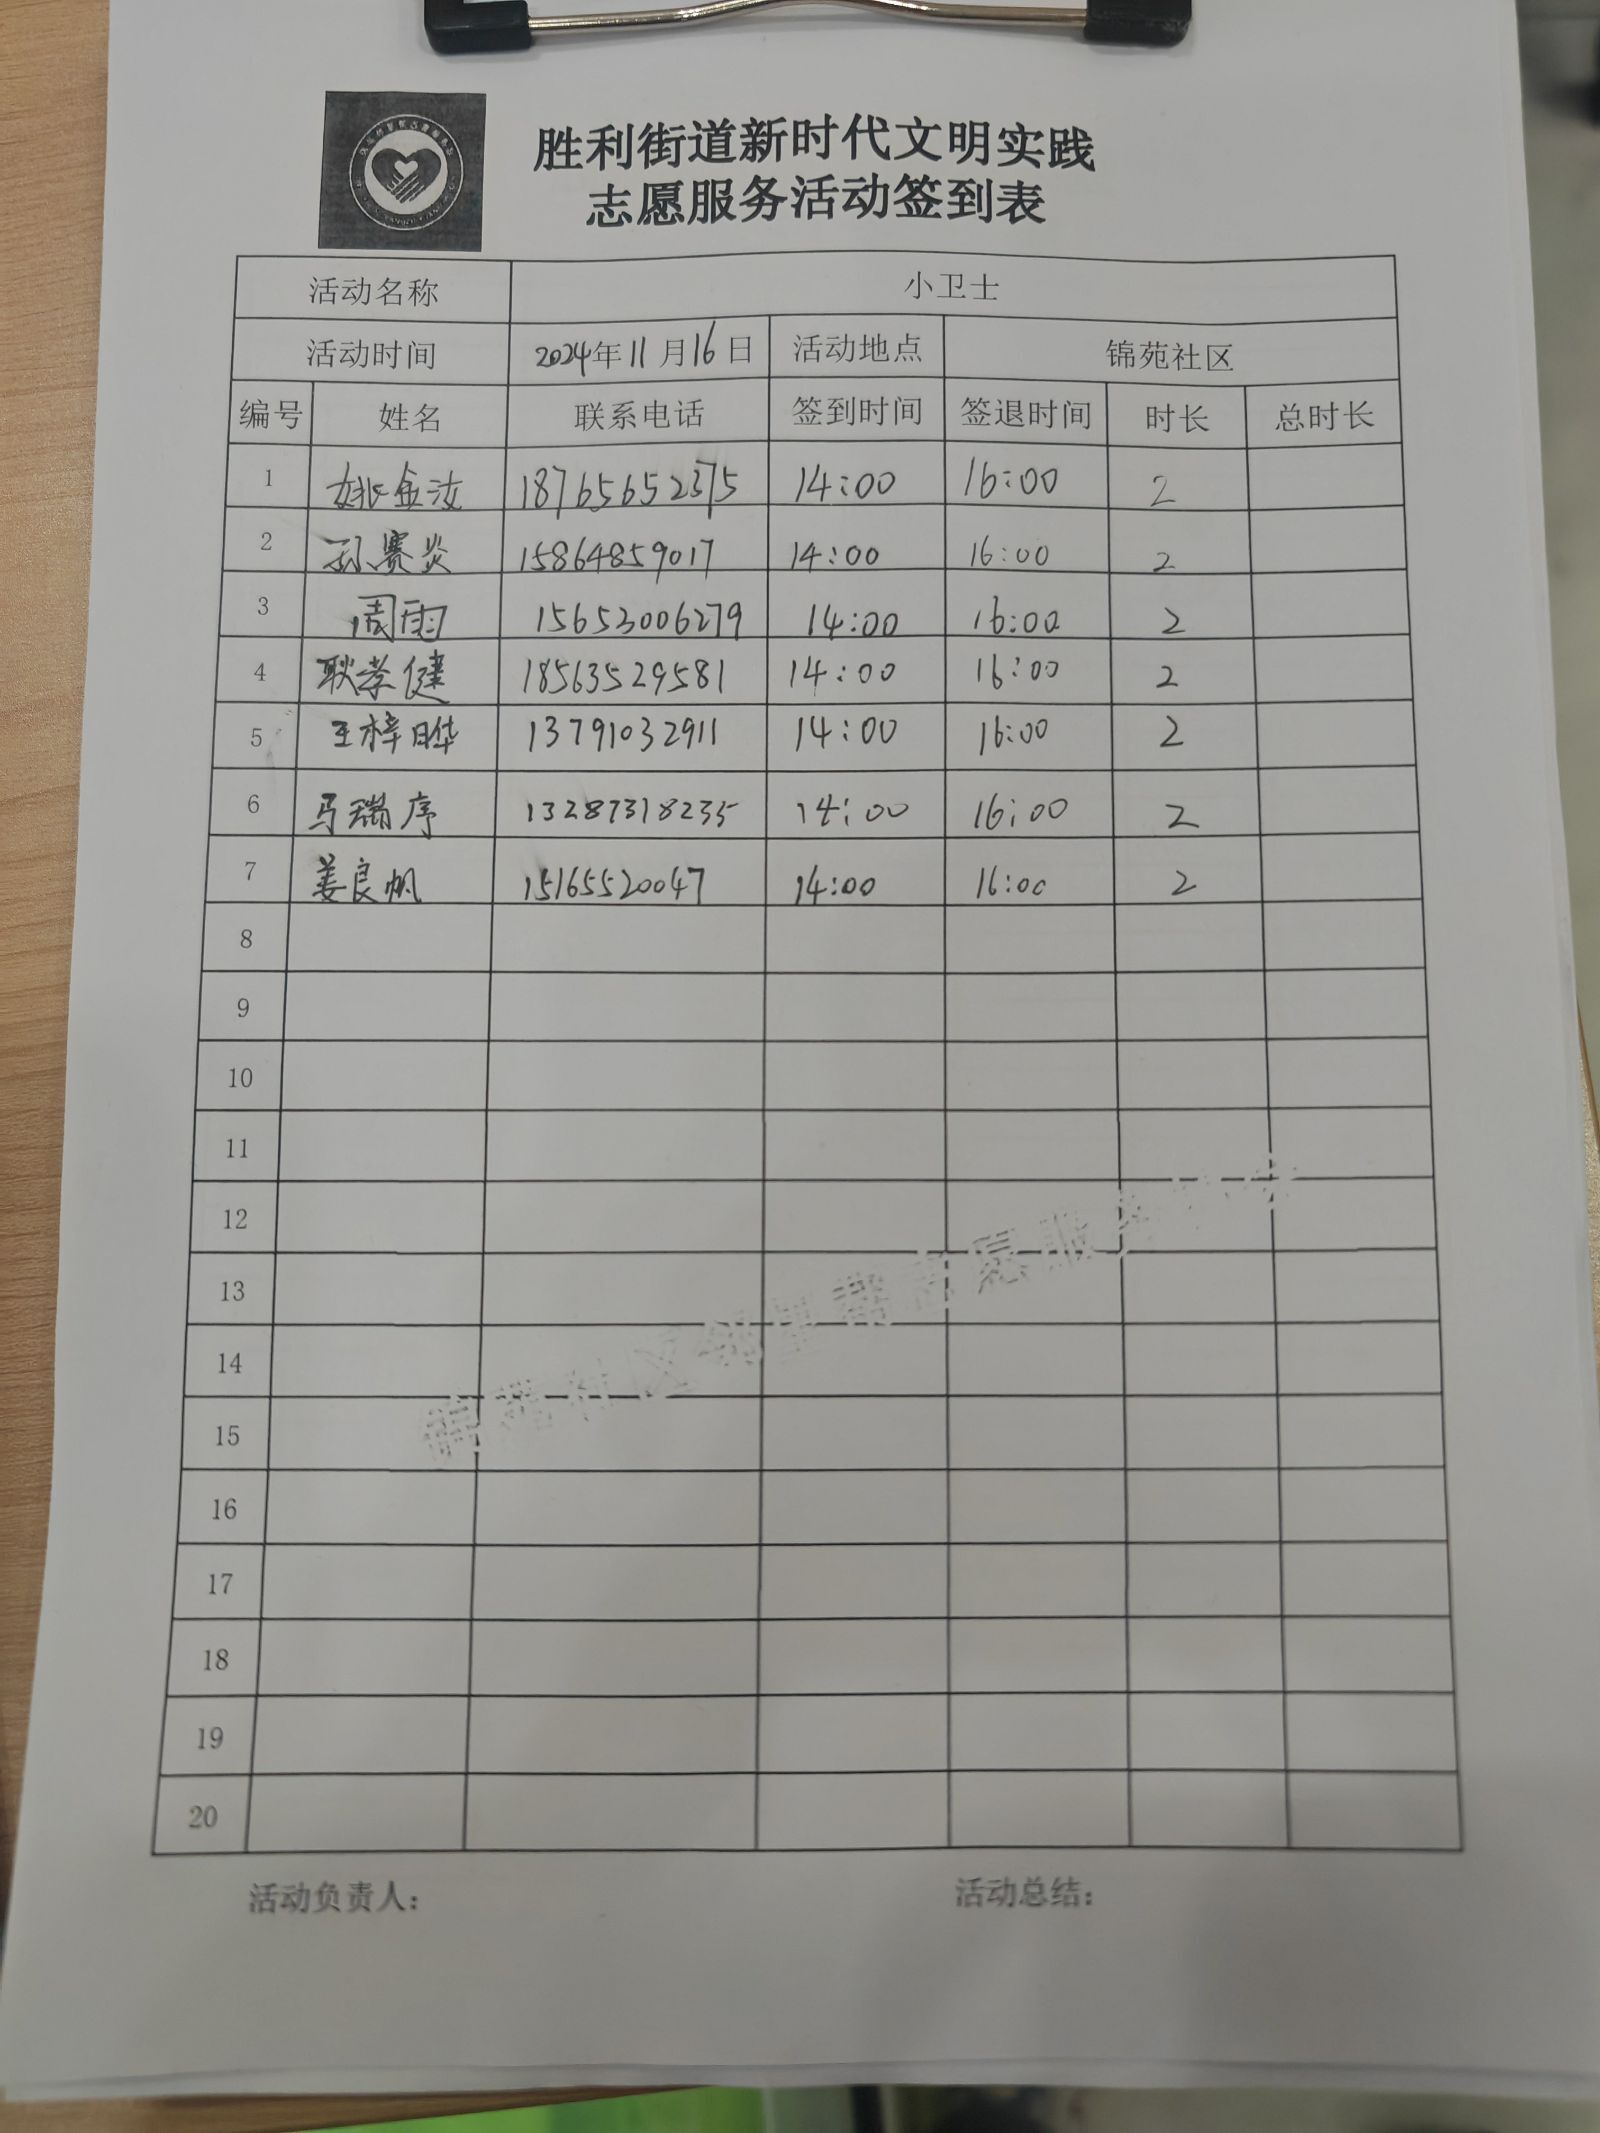 胜利街道新时代文明实践
志愿服务活动签到表
活动名称 小卫士
活动时间 2024年11月16日 活动地点 锦苑社区
编号 姓名 联系电话 签到时间 签退时间 时长 总时长
1 姚金汝 18765652375 14:00 16:00 2
2 孙赛炎 15864859017 14:00 16:00 2
3 周雨 15653006279 14:00 16:00 2
4 耿孝健 18563529581 14:00 16:00 2
5 王梓晔 13791032911 14:00 16:00 2
6 马瑞序 13287318235 14:00 16:00 2
7 姜良帆 15165520047 14:00 16:00 2
8
9
10
11
12
13
14
15
16
17
18
19
20
锦苑社区邻里帮志愿服务
活动负责人： 活动总结：